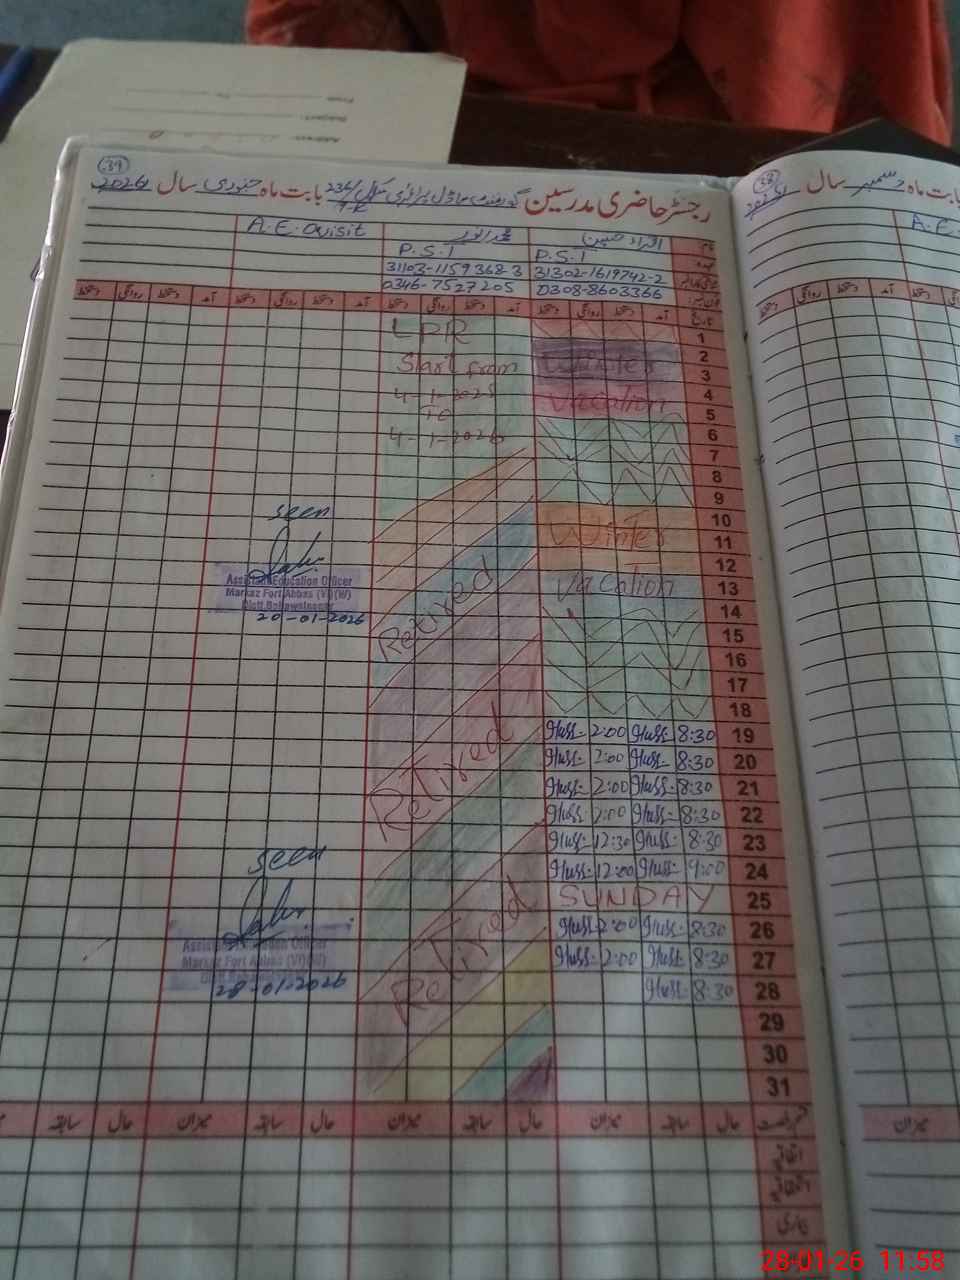 39
رجسٹر حاضری مدرسین گورنمنٹ ماڈل پرائمری سکول 236/9-R بابت ماہ جنوری سال 2026
نام
A.E.O visit
P.S.T P.S.T
31302-1619742-2 31103-1159368-3
0308-8603366 0346-7527205
تاریخ آمد دستخط روانگی دستخط آمد دستخط روانگی دستخط آمد دستخط روانگی دستخط آمد دستخط روانگی دستخط
1 LPR
2 Winter Start from
3
4 Vacation 4-1-2025
5 To
6 4-1-2026
7
8
9
10 Winter seen
11
12
13 Vacation Retired
Assistant Education Officer
Markaz Fort Abbas (VI)(W)
Distt Bahawalnagar
20-01-2026
14
15
16
17
18
19 8:30 2:00 Retired
20 8:30 2:00
21 8:30 2:00
22 8:30 2:00
23 8:30 12:30
24 9:00 12:00 seen
25 SUNDAY
26 8:30 2:00 Retired
27 8:30 2:00
Assistant Education Officer
Markaz Fort Abbas (VI)(W)
Distt Bahawalnagar
28-01-2026
28 8:30
29
30
31
حال سابقہ میزان حال سابقہ میزان حال سابقہ میزان حال سابقہ
اتفاقیہ
استحقاقیہ
بیماری
38
بابت ماہ دسمبر سال
A.E.
دستخط روانگی دستخط آمد دستخط
میزان
28-01-26 11:58